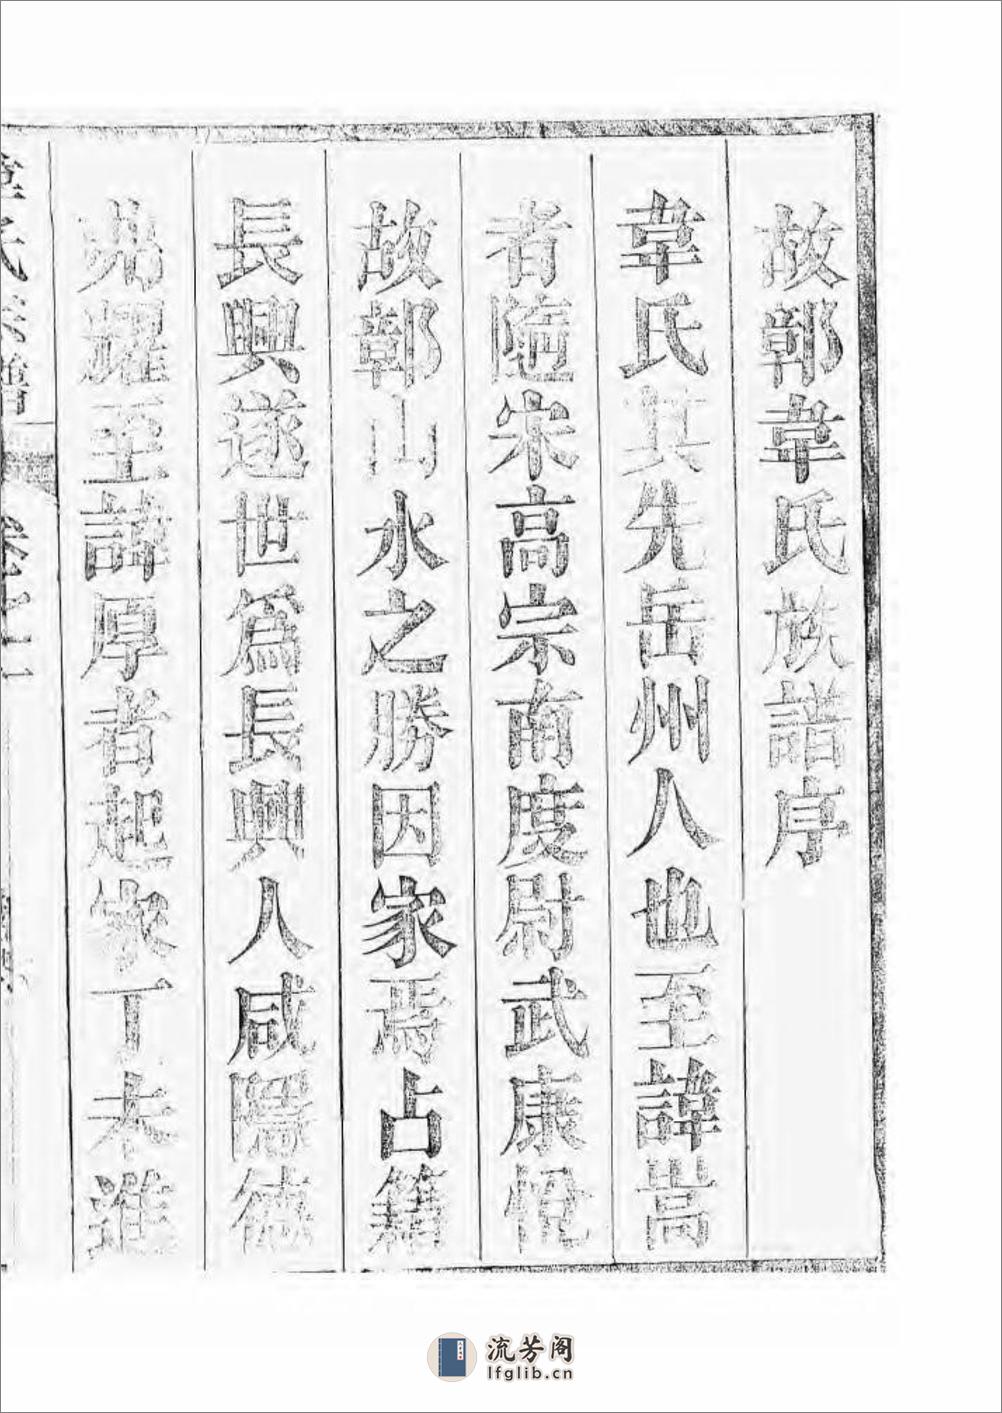 故鄣韋氏族譜序
韋氏其先岳州人也至諱嵩
者隨宋高宗南度尉武康悅
故鄣山水之勝因家焉占籍
長興遂世爲長興人咸隱德
光耀至諱厚者起家丁未進
韋氏宗譜 卷之二
流芳阁
lfglib.cn